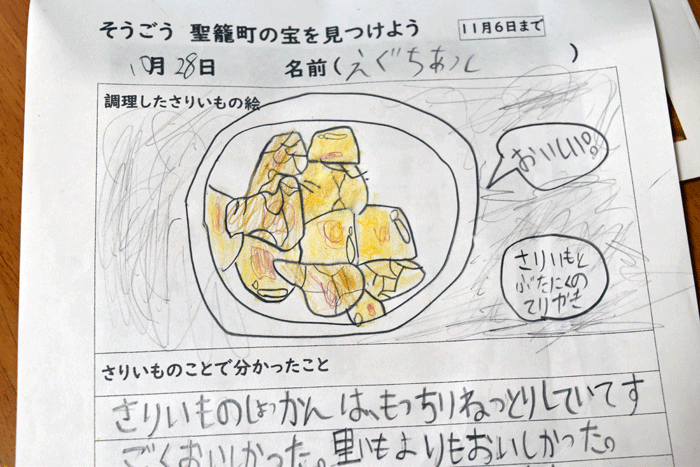 そうごう 聖籠町の宝を見つけよう
11月6日まで
10月28日 名前(えぐちあつし)
調理したさりいもの絵
おいしい!!
さりいもと
ぶたにくの
てりがき
さりいものことで分かったこと
さりいものしょっかんは、もっちりねっとりしていてす
ごくおいしかった。里いもよりもおいしかった。